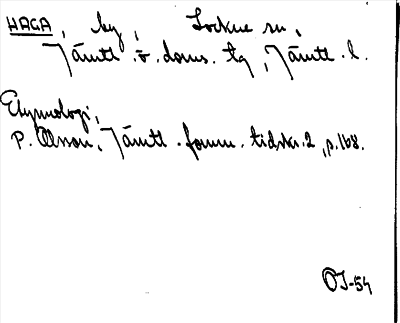 HAGA, by, Lockne sn,
Jämtl. ö. doms. tg, Jämtl. l.
Etymologi,
P. Olsson, Jämtl. fornm. tidskr. 2, p. 168.
OJ-54